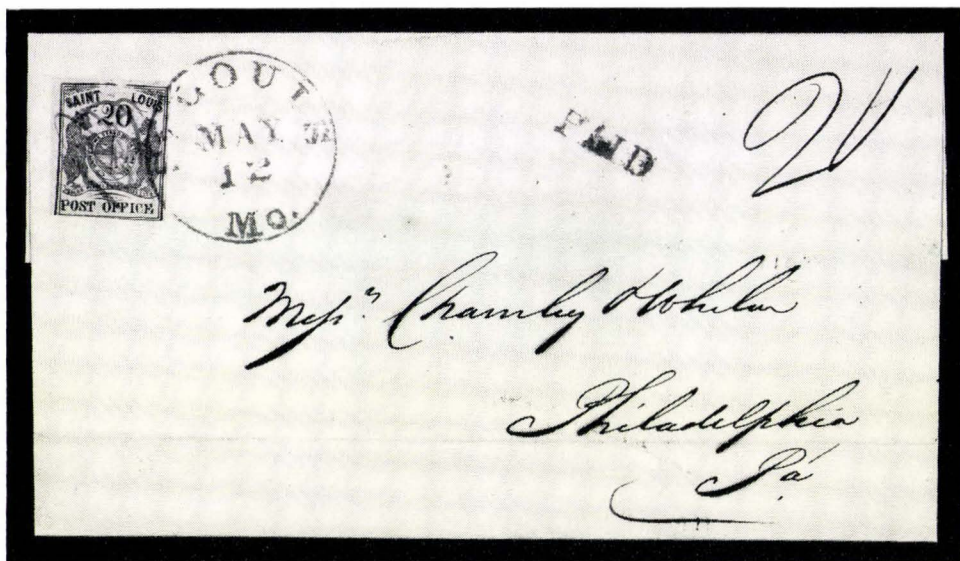 SAINT LOUIS
20
POST OFFICE
MAY
12
Mo.
PAID
20
Mess.rs Charnley & Whelen
Philadelphia
Pa